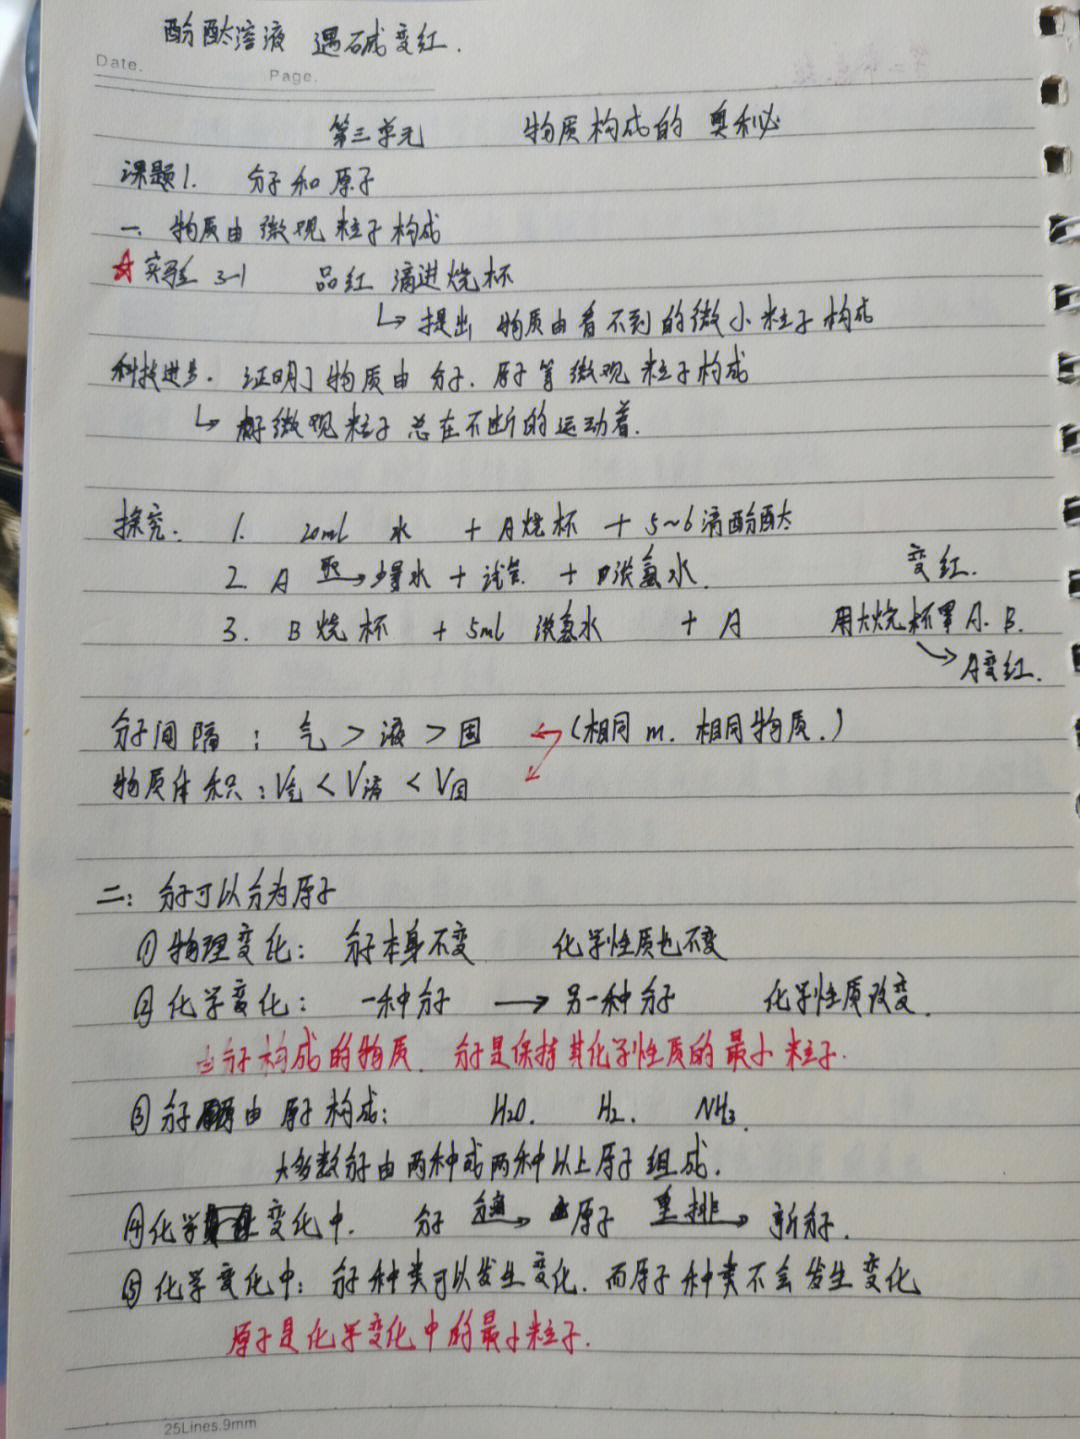 酚酞溶液 遇碱变红.
Date.
Page.
第三单元 物质构成的 奥秘
课题1. 分子和原子
一. 物质由微观粒子构成
☆实验 3-1 品红 滴进烧杯
↳ 提出 物质由看不到的微小粒子构成
科技进步. 证明了物质由 分子. 原子等微观 粒子构成
↳ 微观粒子总在不断的运动着.
探究. 1. 20ml 水 + A烧杯 + 5~6滴酚酞
2. A 取→少量水 + 试管 + 浓氨水. 变红.
3. B 烧杯 + 5ml 浓氨水 + A 用大烧杯罩 A. B.
→A变红.
分子间隔 : 气 > 液 > 固 (相同 m. 相同物质.)
物质体积 : V气 < V液 < V固
二: 分子可以分为原子
① 物理变化: 分子本身不变 化学性质也不变
② 化学变化: 一种分子 → 另一种分子 化学性质改变.
由分子构成的物质. 分子是保持其化学性质的最小粒子.
③ 分子由原子构成: H2O. H2. NH3.
大多数分子由两种或两种以上原子组成.
④化学变化中. 分子 → 原子 重排→ 新分子.
⑤ 化学变化中: 分子种类可以发生变化. 而原子种类不会发生变化
原子是化学变化中的最小粒子.
25Lines.9mm